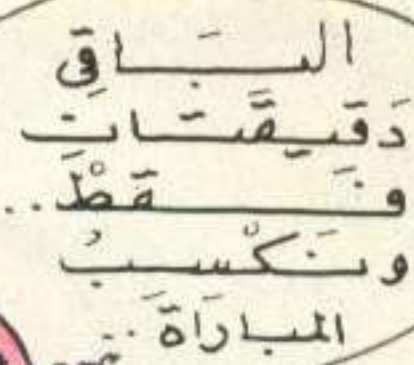 البَاقِي
دَقِيقَتَانِ
فَقَطْ..
ونَكْسبُ
المباراَةَ..